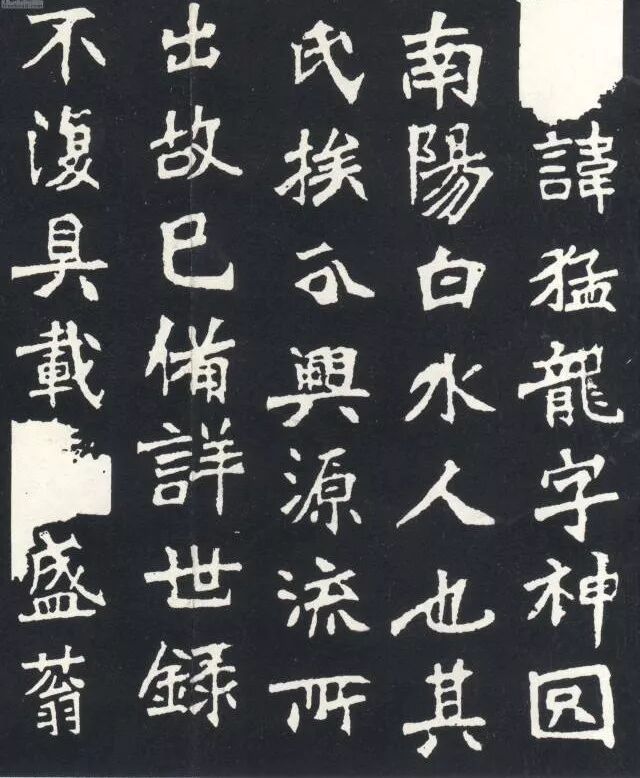 諱猛龍字神囧
南陽白水人也其
氏族分興源流所
出故已備詳世錄
不復具載盛蓊